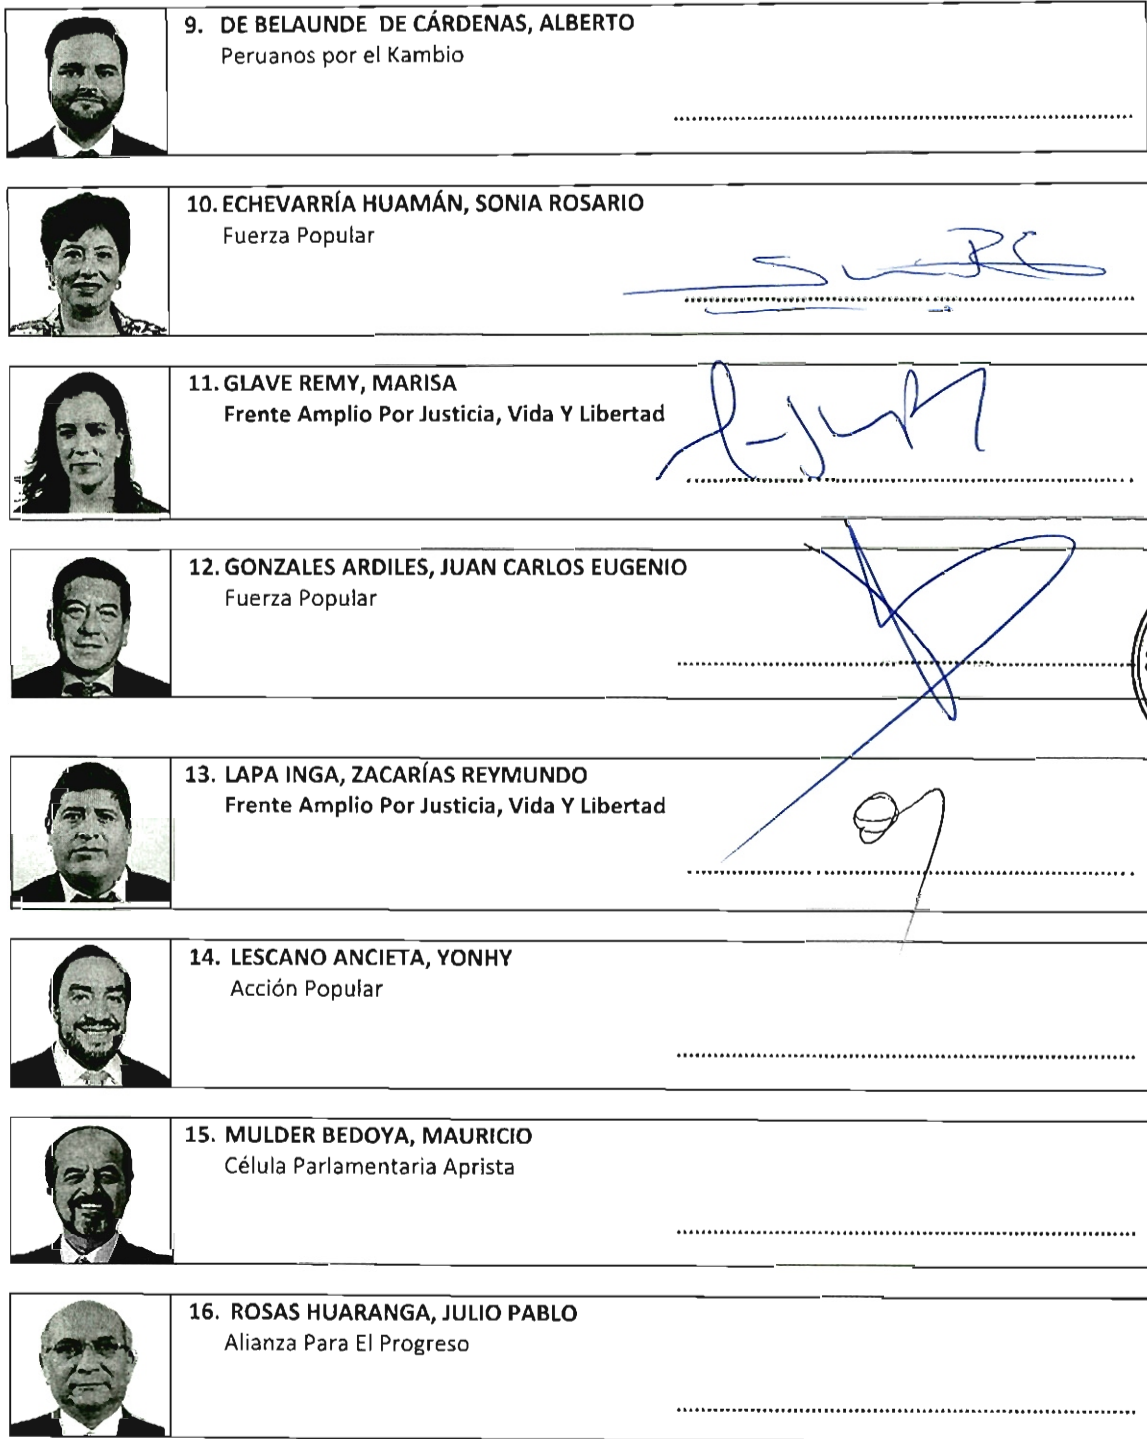 9. DE BELAUNDE DE CÁRDENAS, ALBERTO
Peruanos por el Kambio
10. ECHEVARRÍA HUAMÁN, SONIA ROSARIO
Fuerza Popular
11. GLAVE REMY, MARISA
Frente Amplio Por Justicia, Vida Y Libertad
12. GONZALES ARDILES, JUAN CARLOS EUGENIO
Fuerza Popular
13. LAPA INGA, ZACARÍAS REYMUNDO
Frente Amplio Por Justicia, Vida Y Libertad
14. LESCANO ANCIETA, YONHY
Acción Popular
15. MULDER BEDOYA, MAURICIO
Célula Parlamentaria Aprista
16. ROSAS HUARANGA, JULIO PABLO
Alianza Para El Progreso